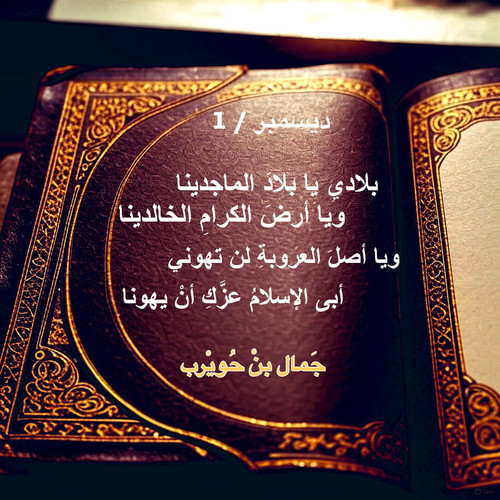 ديسمبر / 1
بلادي يا بَلادَ الماجدينا
ويا أرضَ الكرامِ الخالدينا
ويا أصلَ العروبةِ لن تهوني
أبى الإسلامُ عزَّكِ أنْ يهونا
جَمال بنْ حُويْرب